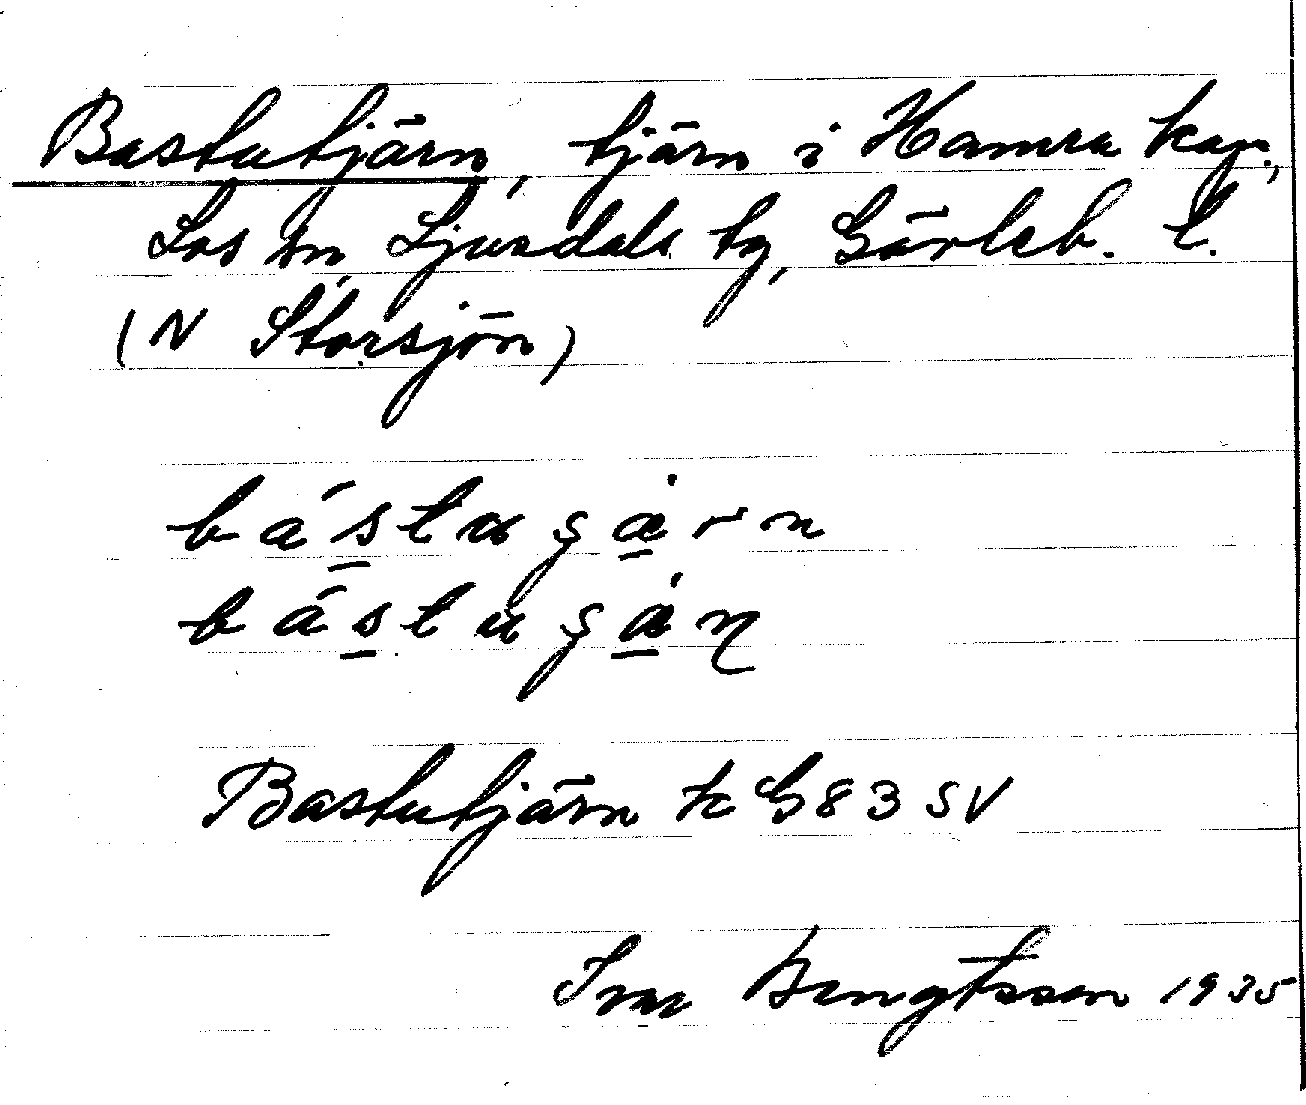 Bastutjärn, tjärn i Hamra kap.,
Los sn, Ljusdals tg, Gävleb. l.
(N Storsjön)
Bastutjärn tc G 83 SV
Ivar Bengtsson 1935